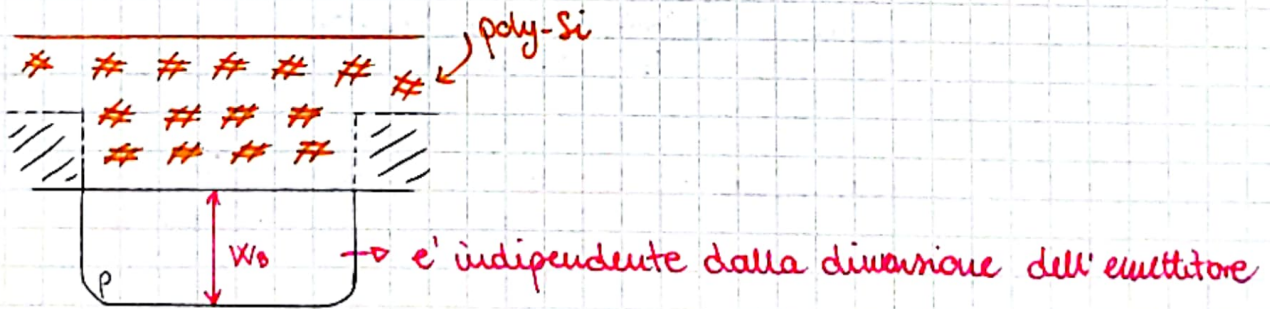 poly-Si
WB → e' indipendente dalla dimensione dell'emettitore
p